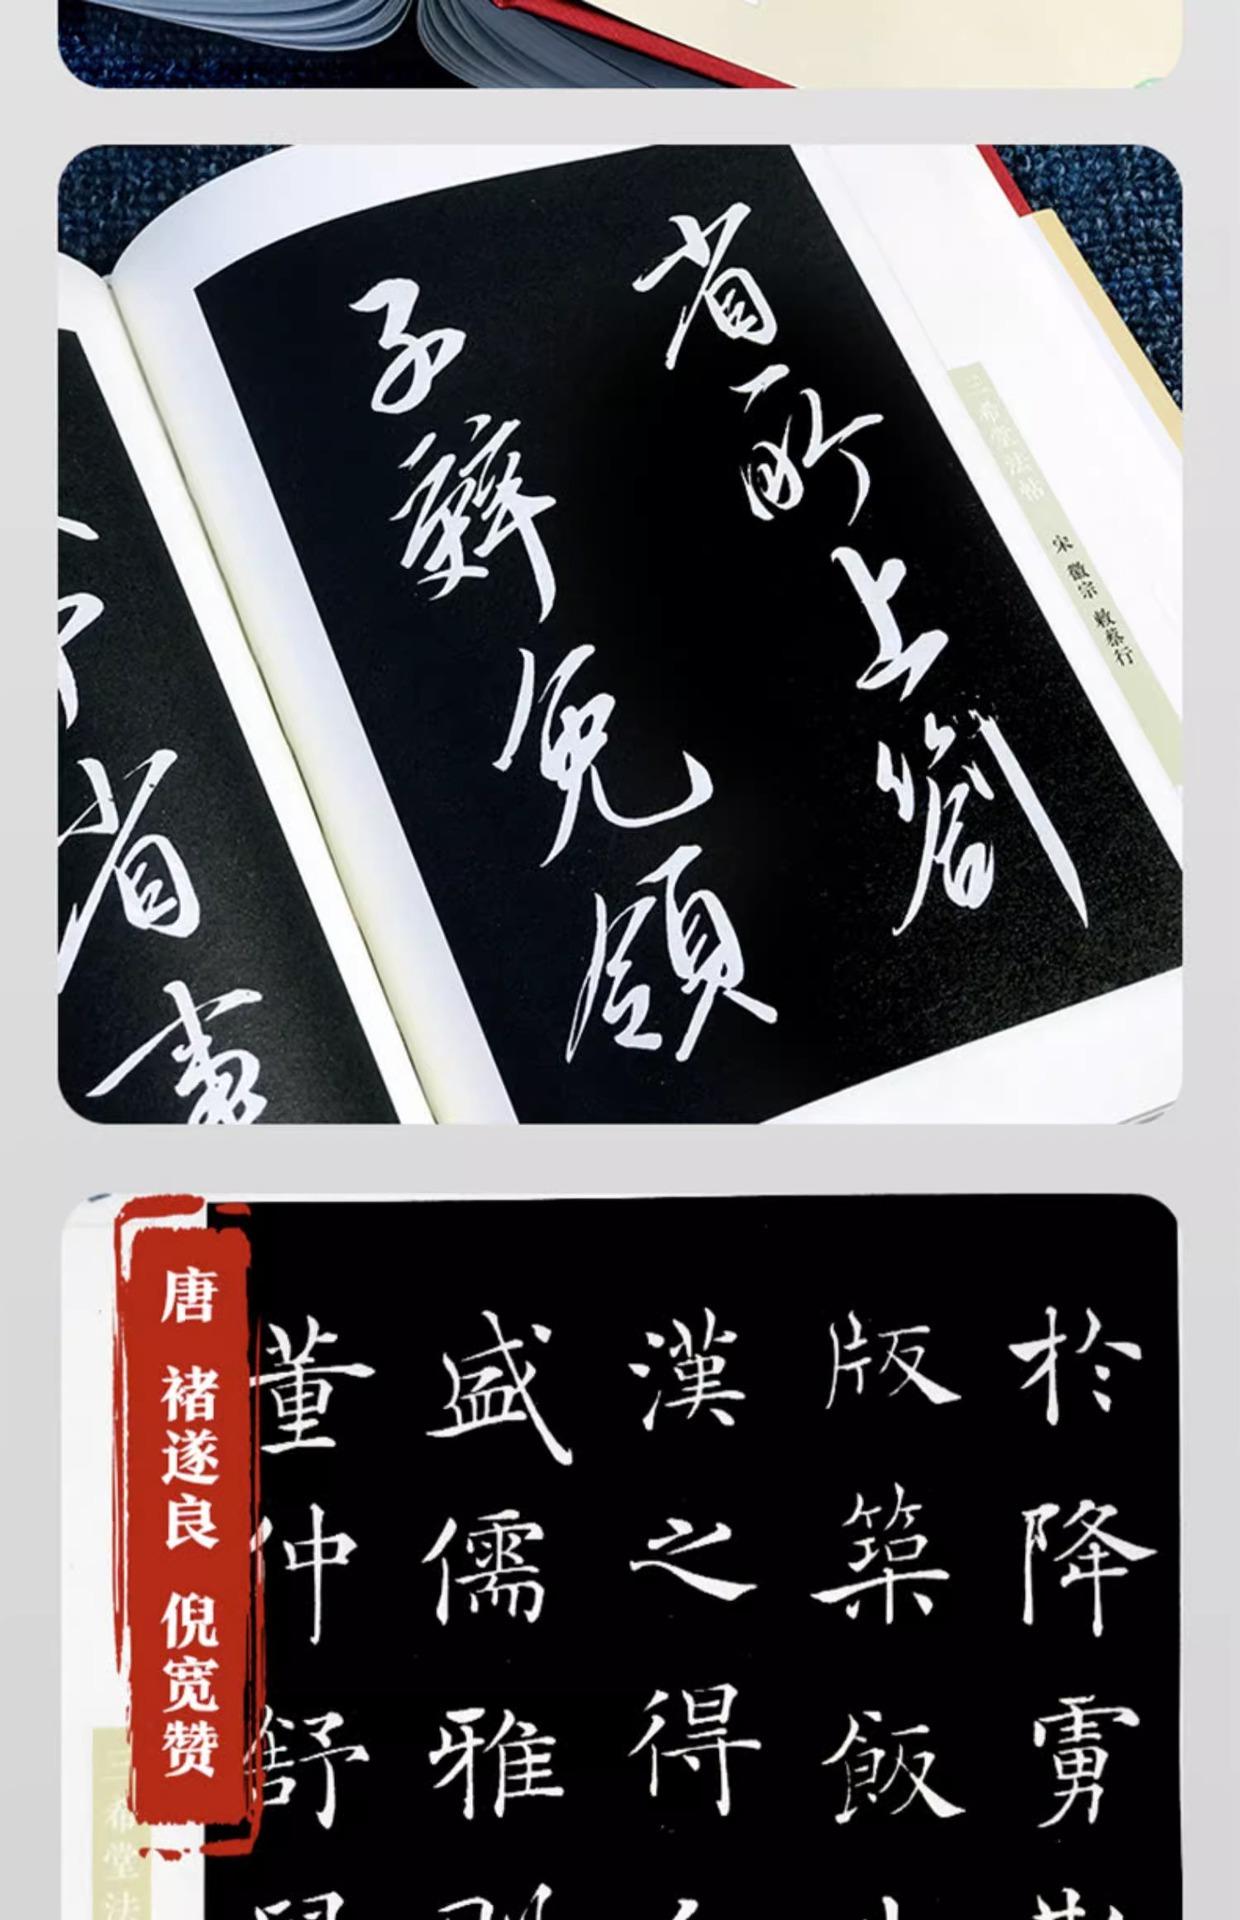 三希堂法帖 宋 徽宗 敕蔡行
省所上劄
子辭免領
省
唐 褚遂良 倪宽赞
於降虜
版築飯
漢之得
盛儒雅
董仲舒
三希堂法